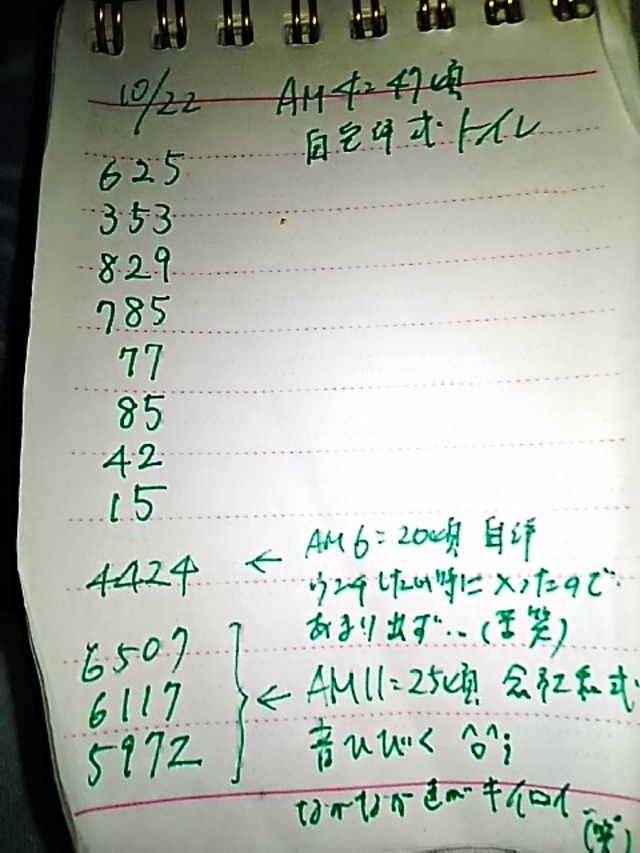 10/22 AM4:47頃
自宅洋式トイレ
625
353
829
785
77
85
42
15
4424 ← AM6:20頃 自洋
ウンチしたい時に入ったので
あまり出ず‥(苦笑)
6507
6117
5972
} ← AM11:25頃 会社和式
音ひびく ^o^;
なかなか色がキイロイ
(笑)